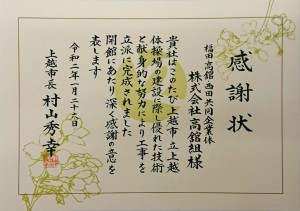 感謝状
福田 高舘 西田共同企業体
株式会社高舘組様
貴社はこのたび上越市立上越
体操場の建設に際し優れた技術
と献身的な努力により工事を
立派に完成されました
開館にあたり深く感謝の意を
表します
令和二年二月二十九日
上越市長 村山秀幸